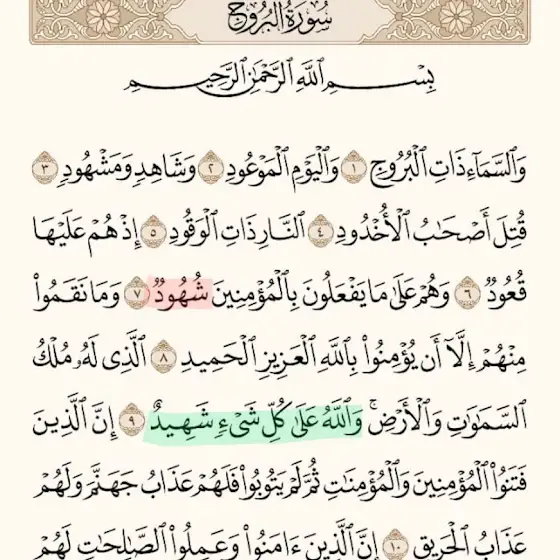 سُورَةُ البُرُوجِ
بِسْمِ ٱللَّهِ ٱلرَّحْمَٰنِ ٱلرَّحِيمِ
وَٱلسَّمَآءِ ذَاتِ ٱلْبُرُوجِ ١ وَٱلْيَوْمِ ٱلْمَوْعُودِ ٢ وَشَاهِدٍ وَمَشْهُودٍ ٣
قُتِلَ أَصْحَٰبُ ٱلْأُخْدُودِ ٤ ٱلنَّارِ ذَاتِ ٱلْوَقُودِ ٥ إِذْ هُمْ عَلَيْهَا
قُعُودٌ ٦ وَهُمْ عَلَىٰ مَا يَفْعَلُونَ بِٱلْمُؤْمِنِينَ شُهُودٌ ٧ وَمَا نَقَمُوا۟
مِنْهُمْ إِلَّآ أَن يُؤْمِنُوا۟ بِٱللَّهِ ٱلْعَزِيزِ ٱلْحَمِيدِ ٨ ٱلَّذِى لَهُۥ مُلْكُ
ٱلسَّمَٰوَٰتِ وَٱلْأَرْضِ ۚ وَٱللَّهُ عَلَىٰ كُلِّ شَىْءٍ شَهِيدٌ ٩ إِنَّ ٱلَّذِينَ
فَتَنُوا۟ ٱلْمُؤْمِنِينَ وَٱلْمُؤْمِنَٰتِ ثُمَّ لَمْ يَتُوبُوا۟ فَلَهُمْ عَذَابُ جَهَنَّمَ وَلَهُمْ
عَذَابُ ٱلْحَرِيقِ ١٠ إِنَّ ٱلَّذِينَ ءَامَنُوا۟ وَعَمِلُوا۟ ٱلصَّٰلِحَٰتِ لَهُمْ